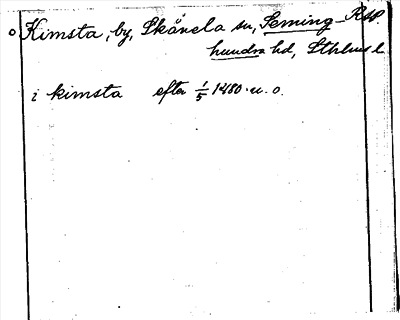 o Kimsta, by, Skånela sn, Seming-
hundra hd, Sthlms l.
i kimsta efter 1/5 1480. u. o.